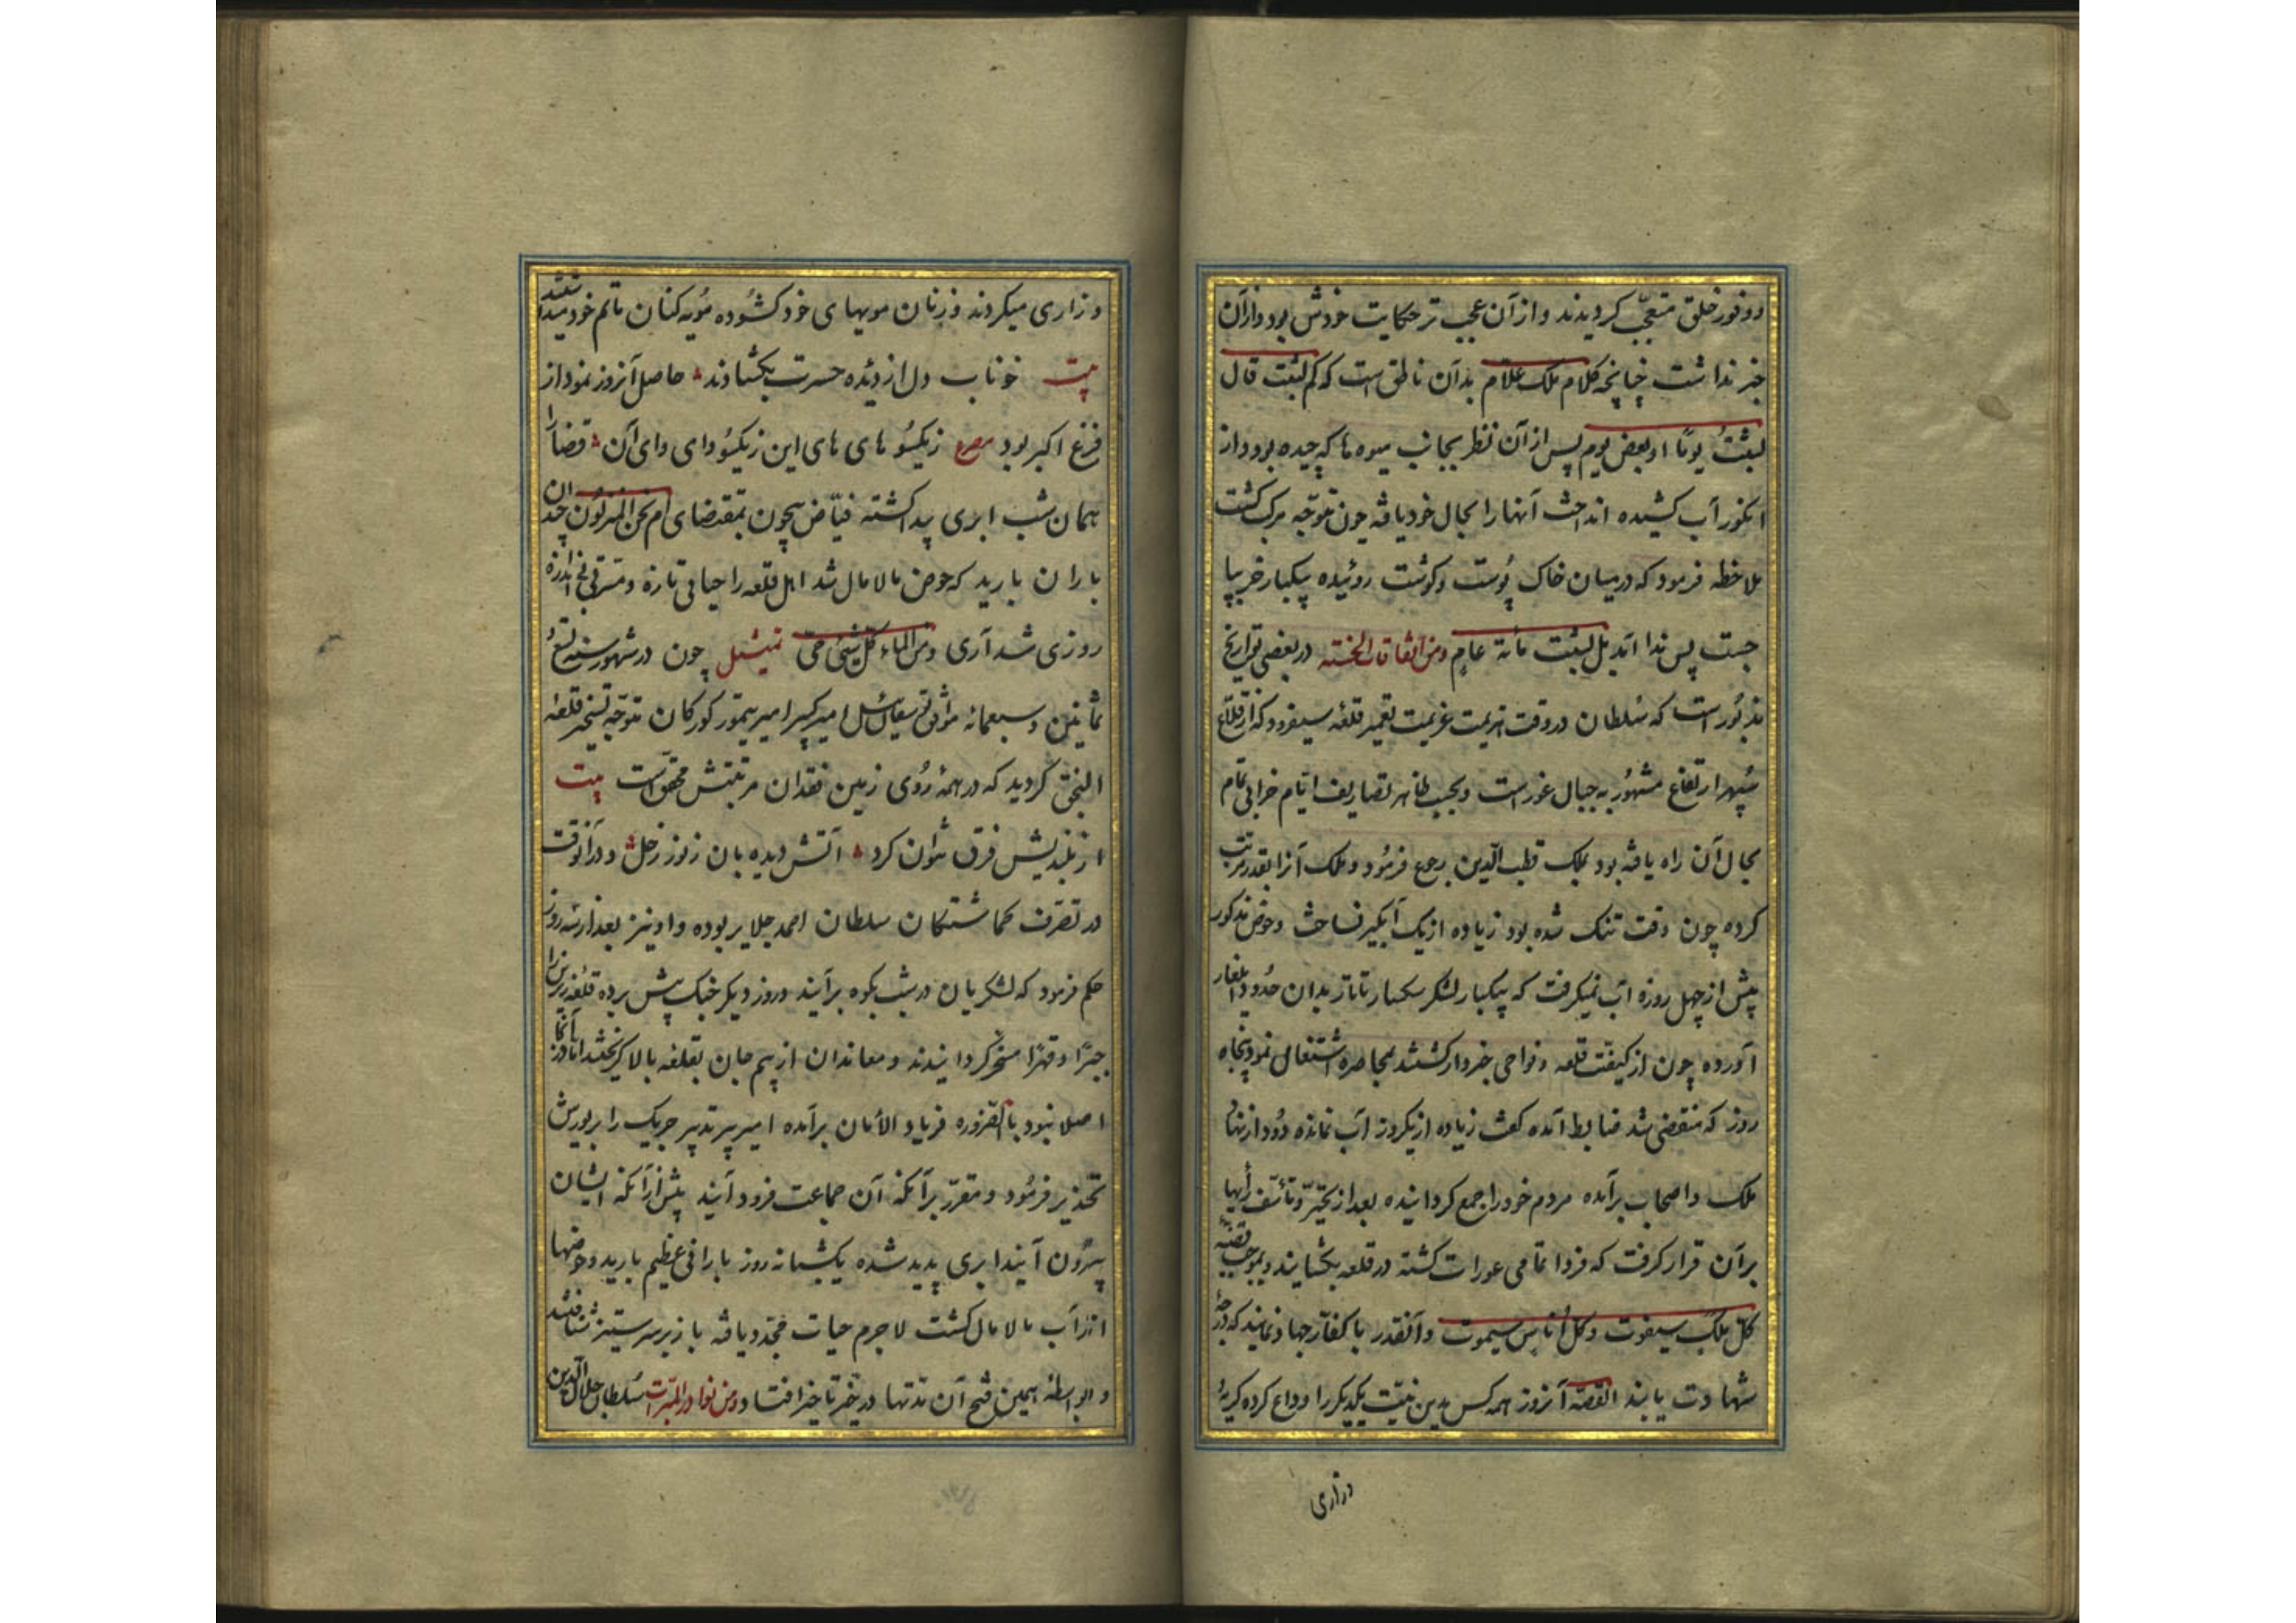 ووفور خلق متعجّب کردیدند و از آن عجب تر حکایت خودش بود و از آن
خبر نداشت چنانچه کلام ملک علّام بدان ناطق است که کم لبثت قال
لبثتُ یومًا او بعض یوم پس از آن نظر بجانب میوه ها که چیده بود و از
انکور آب کشیده انداخت آنها را بحال خود یافه چون متوجّه مرکب کشت
ملاحظه فرمود که در میان خاک پُوست و کوشت روئیده بیکبار خر بپا
جست پس ندا آمد بل لبثت مائة عامٍ ومن اتفاقات الحسنه در بعضی تواریخ
مذکُور است که سُلطان در وقت هزیمت عزیمت تعمیر قلعه سیفرود که از قلاع
سُپهر ارتفاع مشهُور به جبال غور است و بحسب ظاهر تصاریف ایّام خرابی تمام
بحال آن راه یافه بود بملک قطب الدّین رجوع فرمُود و ملک آنرا بقدر مرتب
کرده چون وقت تنک شده بود زیاده از یک آبکیر نساخت و حوض مذکور
پیش از چهل روزه آب نمیکرفت که بیکبار لشکر تاتار بدان حُدود یلغار
آورده چون از کیفیّت قلعه و نواحی خبردار کشتند بمحاصره اشتغال نمود پنجاه
روز که منقضی شد ضابط آمده کفت زیاده از یکروز آب نمانده دُود از نهاد
ملک و اصحاب برآمده مردم خود را جمع کردانیده بعد از تحیّر و تأسّف رأیها
بر آن قرار کرفت که فردا تمامی عورات کشته در قلعه بکشایند و بموجب قضیّه
کلّ ملک سیفوت و کل اُناس سیموت و آنقدر با کفّار جهاد نمایند که درجهٔ
شهادت یابند القصّه آنروز همه کس بدین نیّت یکدیکر را وداع کرده کریهٔ
وزاری
وزاری میکردند و زنان مویهای خود کشُوده مُویه کنان ماتم خود میداشتند
بیت خوناب دل از دیده حسرت بکشادند حاصل آنروز نمودار
فزع اکبر بود مصرع زیکسُو های های این زیکسُو وای وای آن قضا را
همان شب ابری پیدا کشته فیّاض بیچون بمقتضای ام نحن المنزلُون چندان
باران بارید که حوض مالامال شد اهل قلعه را حیاتی تازه و مسرّتی بی اندازه
روزی شد آری ومن الماء کلّ شیئ حیّ تمیثیل چون در شهور سنه تسع
ثمانین و سبعمائه امیر کبیر امیر تیمور کورکان متوجّه تسخیر قلعهٔ
النجق کردید که در همهٔ رُوی زمین فقدان مرتبتش محقّق است بیت
از بلندیش فرق نتوان کرد آتش دیده بان ز نور زحل و در آنوقت
در تصرّف کماشتکان سلطان احمد جلایر بوده و او نیز بعد از سه روز
حکم فرمود که لشکریان در شب بکوه برآیند و روز دیکر جنک پیش برده قلعه زیرین را
جبرًا و قهرًا مسخّر کردانیدند و معاندان از بیم جان بقلعه بالا کریختند امّا در آنجا آب
اصلا نبود بالضّروره فریاد الأمان برآمده امیر پیر تدبیر چریک را از یورش
تحذیر فرمُود و مقرّر برآنکه آن جماعت فرود آیند پیش از آنکه ایشان
بیرُون آیند ابری پدید شده یکشبانه روز بارانی عظیم بارید و حوضها
از آب مالامال کشت لاجرم حیات مجدّد یافه باز بر سر ستیز شتافتند
و بواسطه همین فتح آن مُدّتها در تأخیر افتاد ومن نوادر المبرّات سُلطان جلال الدّین